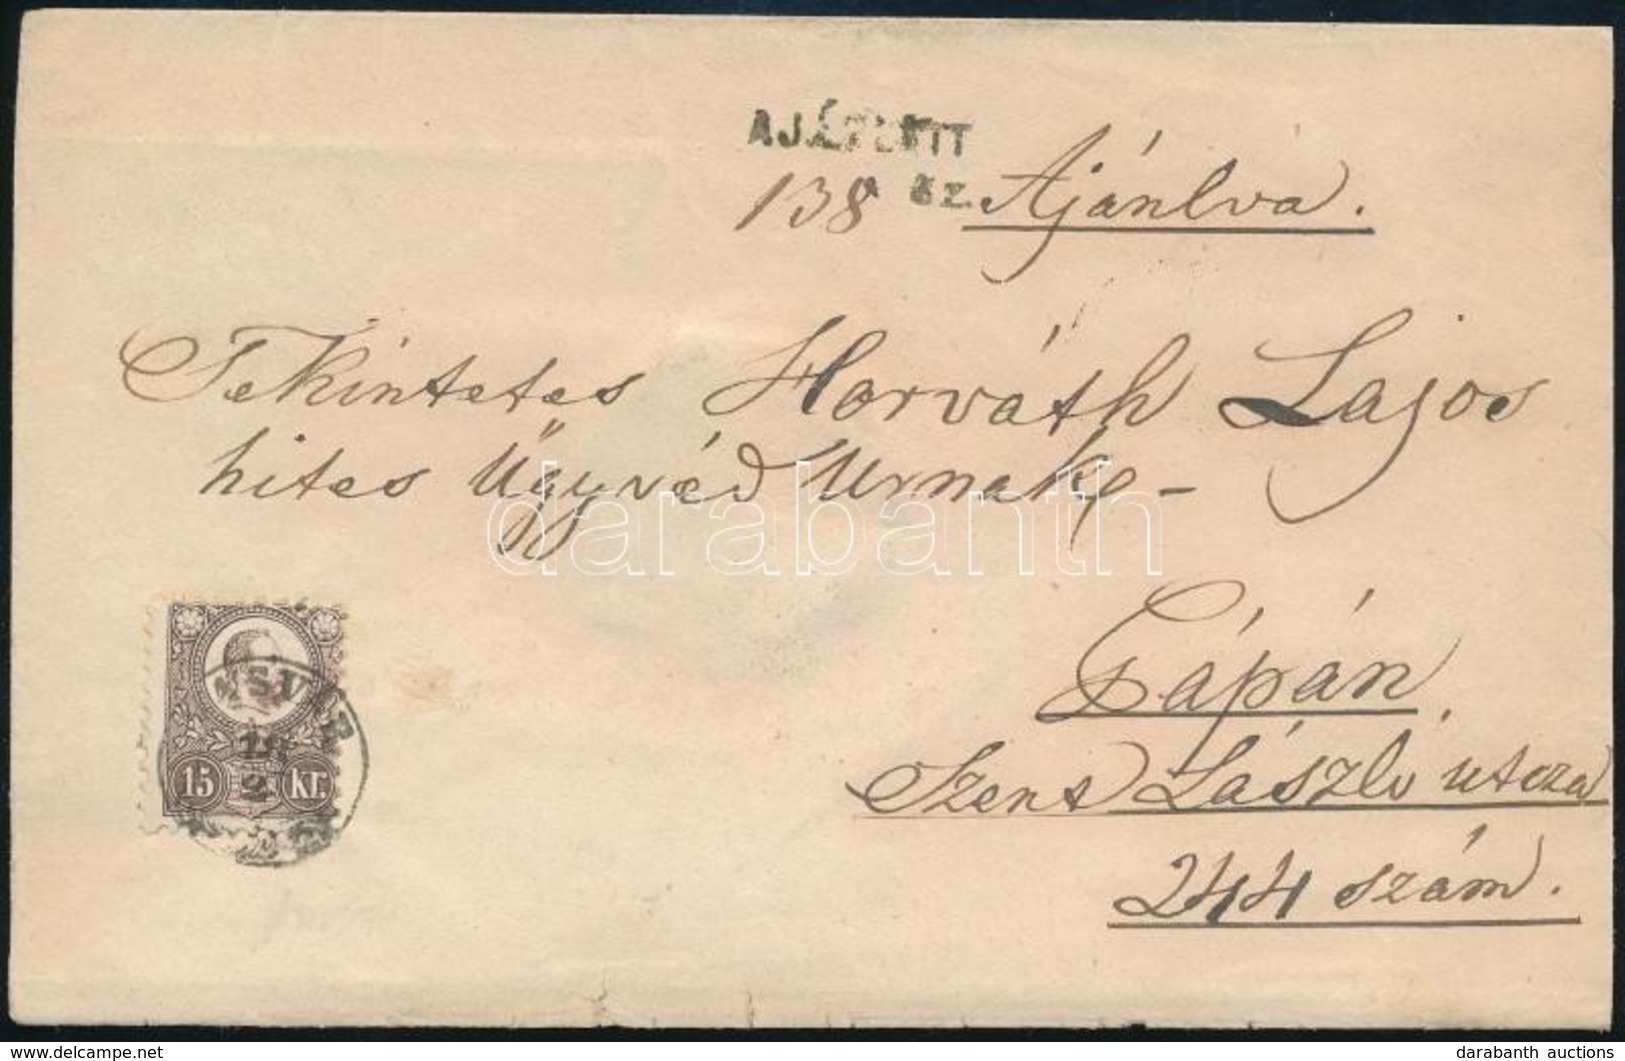 AJÁNLOTT
138 sz. Ajánlva.
Tekintetes Horváth Lajos
hites Ügyvéd Urnak –
darabanth
Pápán
Szent László utcza
244 szám.
15 Kr.
darabanth auctions
www.delcampe.net